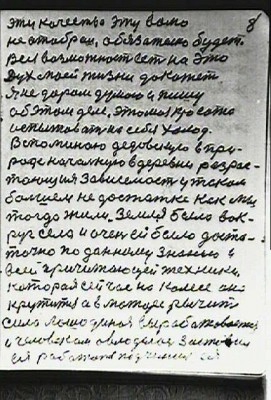 8
эти качества эту само
не отобрал, обязательно будет.
Вся возможность есть на это
Дух моей жизни докажет
Я не даром думаю и пишу
об этом деле, это
испытовать на себя Холод.
Вспоминаю дедовскую в при-
роде началную в деревни разрос-
тающия зависимост у таком
болшем не достатке как мы
тогда жили. Земля было вок-
руг села и очен ей было доста-
точно по данному знанию и
всей причитающей техники,
которая сейчас на колесе он
крутится а в моторе рычит
Сила лошодиная вырабатовается
и человеком овлодела заставил
ея работать